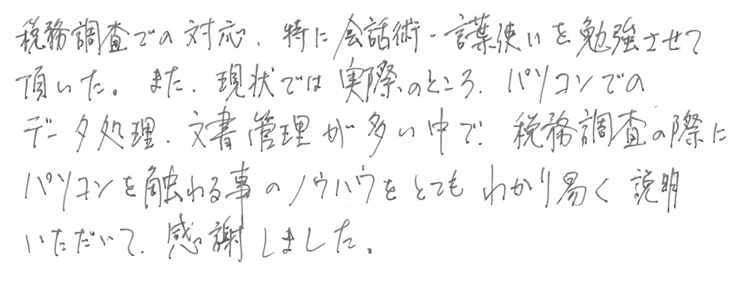 税務調査での対応、特に会話術・言葉使いを勉強させて
頂いた。また、現状では実際のところ、パソコンでの
データ処理、文書管理が多い中で、税務調査の際に
パソコンを触れる事のノウハウをとてもわかり易く説明
いただいて、感謝しました。